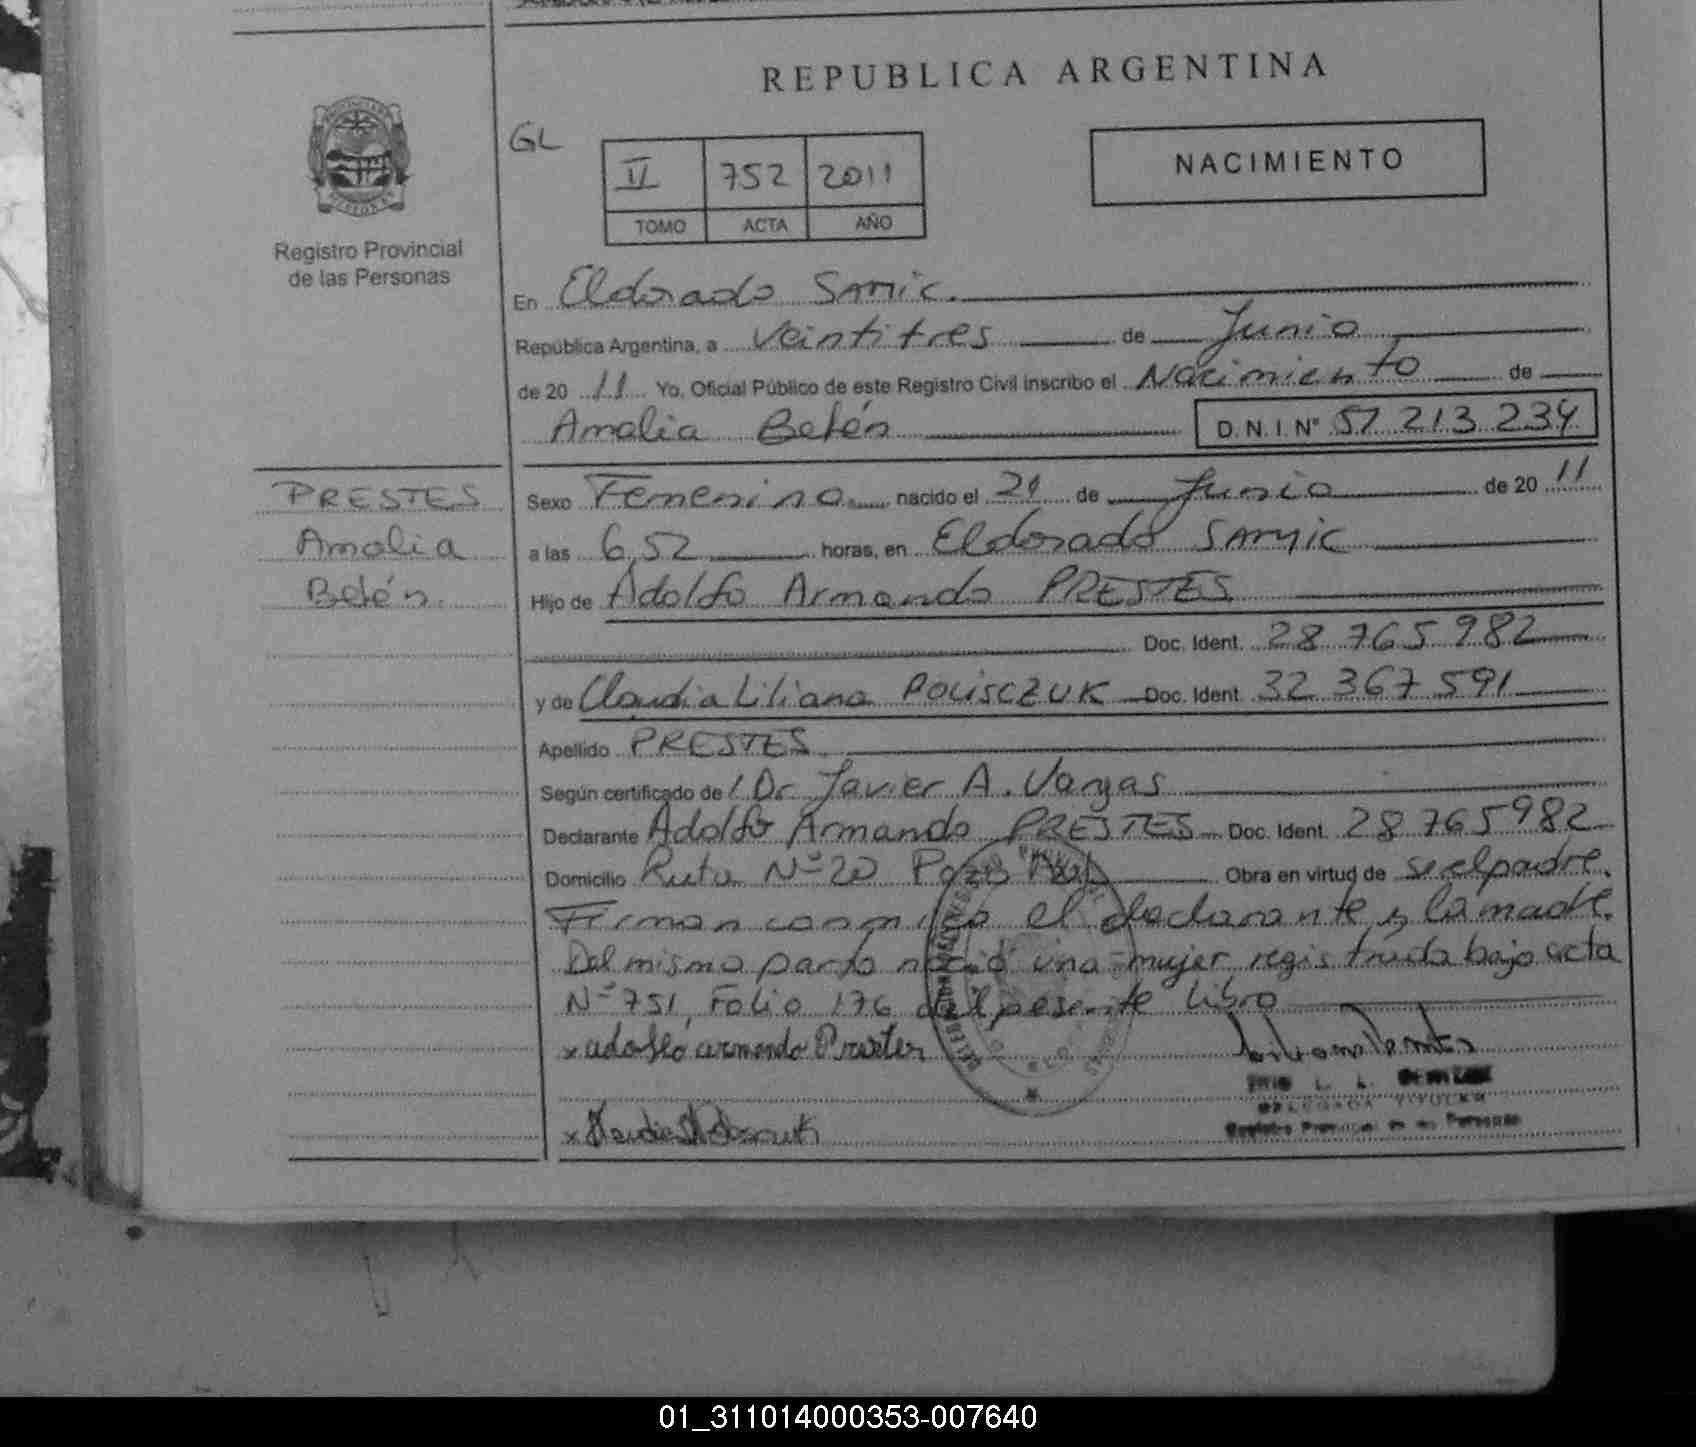 REPUBLICA ARGENTINA
GL
II 752 2011
TOMO ACTA AÑO
NACIMIENTO
Registro Provincial
de las Personas
En Eldorado Samic.
República Argentina, a Veintitres de Junio
de 20 11 Yo, Oficial Público de este Registro Civil inscribo el Nacimiento de
Amalia Belén D.N.I. Nº 51 213 234
PRESTES
Amalia
Belén.
Sexo Femenino nacido el 21 de Junio de 20 11
a las 6,52 horas, en Eldorado SAMIC
Hijo de Adolfo Armando PRESTES
Doc. Ident. 28 765 982
y de Claudia Liliana POLISCZUK Doc. Ident. 32 367 591
Apellido PRESTES
Según certificado de / Dr Javier A. Vargas
Declarante Adolfo Armando PRESTES Doc. Ident. 28 765 982
Domicilio Ruta Nº 20 Pozo Azul Obra en virtud de ser el padre.
Firman conmigo el declarante y la madre.
Del mismo parto nació una mujer registrada bajo acta
Nº 751, Folio 176 del presente libro
x adolfo armando Prestes
Registro Provincial de las Personas
01_311014000353-007640